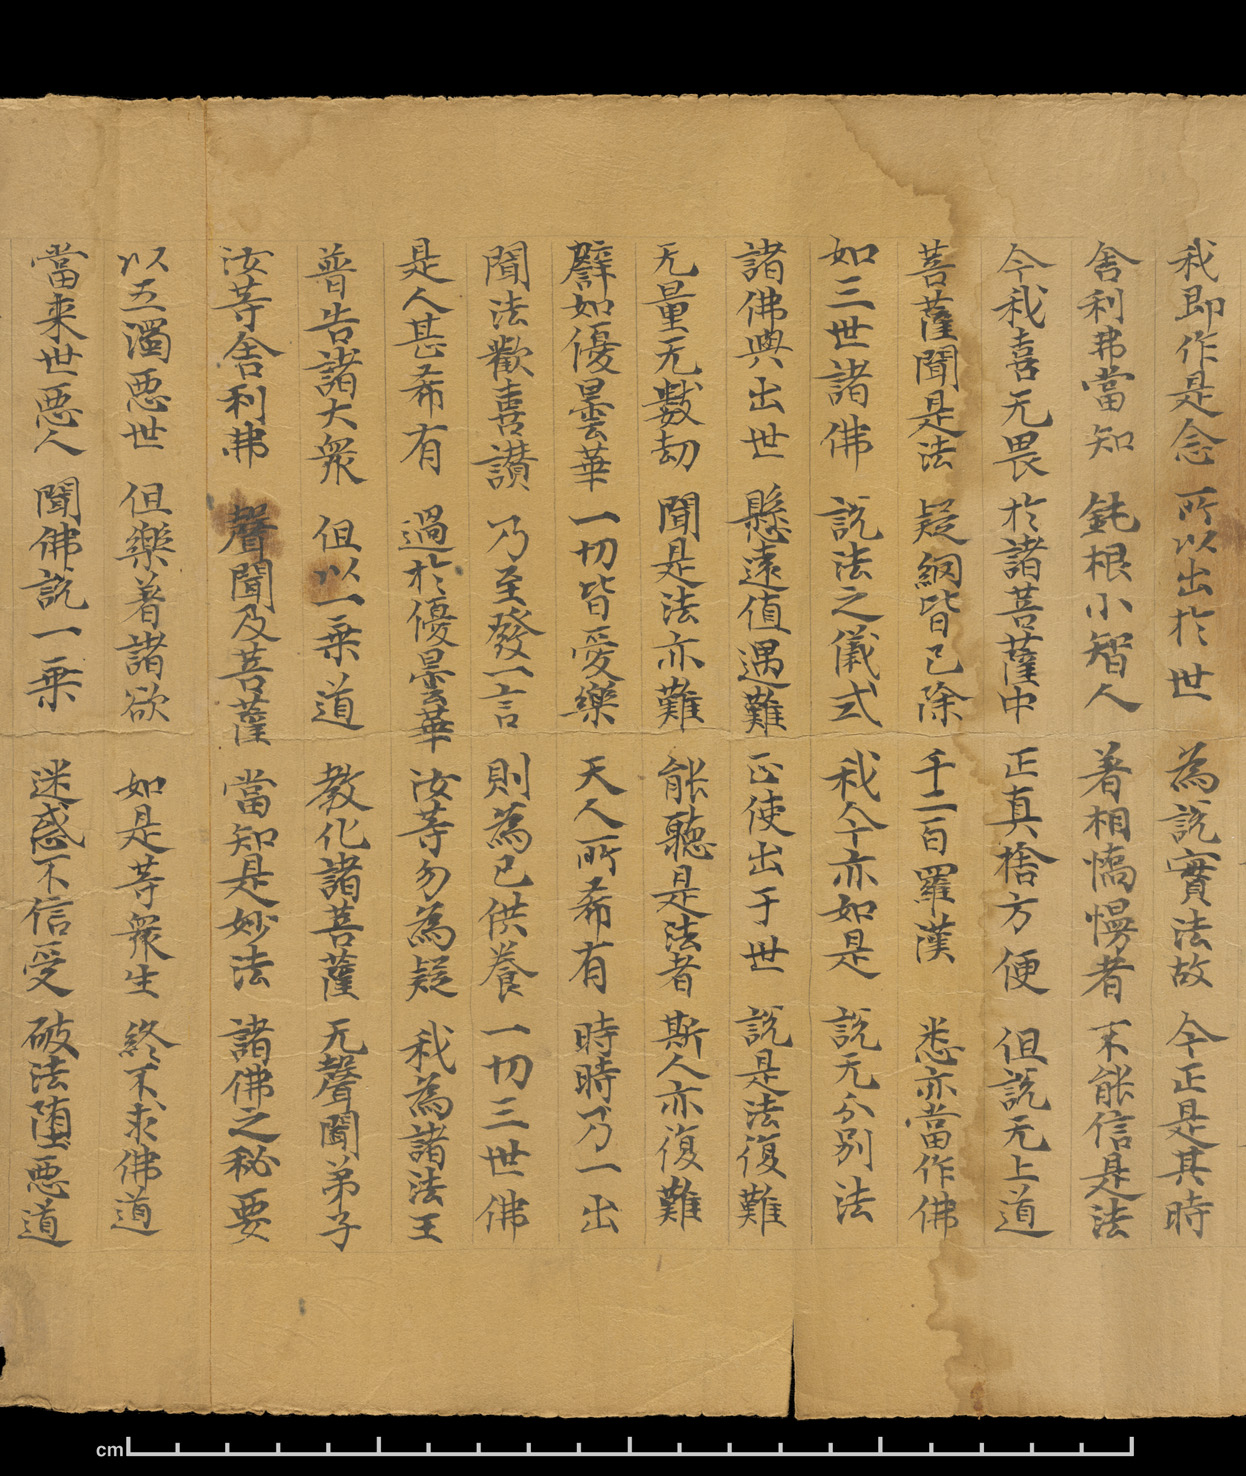 我即作是念 所以出於世 為説實法故 今正是其時
舍利弗當知 鈍根小智人 著相憍慢者 不能信是法
今我喜无畏 於諸菩薩中 正真捨方便 但説无上道
菩薩聞是法 疑網皆已除 千二百羅漢 悉亦當作佛
如三世諸佛 説法之儀式 我今亦如是 説无分別法
諸佛興出世 懸遠值遇難 正使出于世 説是法復難
无量无數劫 聞是法亦難 能聽是法者 斯人亦復難
譬如優曇華 一切皆愛樂 天人所希有 時時乃一出
聞法歡喜讃 乃至發一言 則為已供養 一切三世佛
是人甚希有 過於優曇華 汝等勿為疑 我為諸法王
普告諸大衆 但以一乗道 教化諸菩薩 无聲聞弟子
汝等舍利弗 聲聞及菩薩 當知是妙法 諸佛之秘要
以五濁惡世 但樂著諸欲 如是等衆生 終不求佛道
當来世惡人 聞佛説一乗 迷惑不信受 破法堕惡道
cm